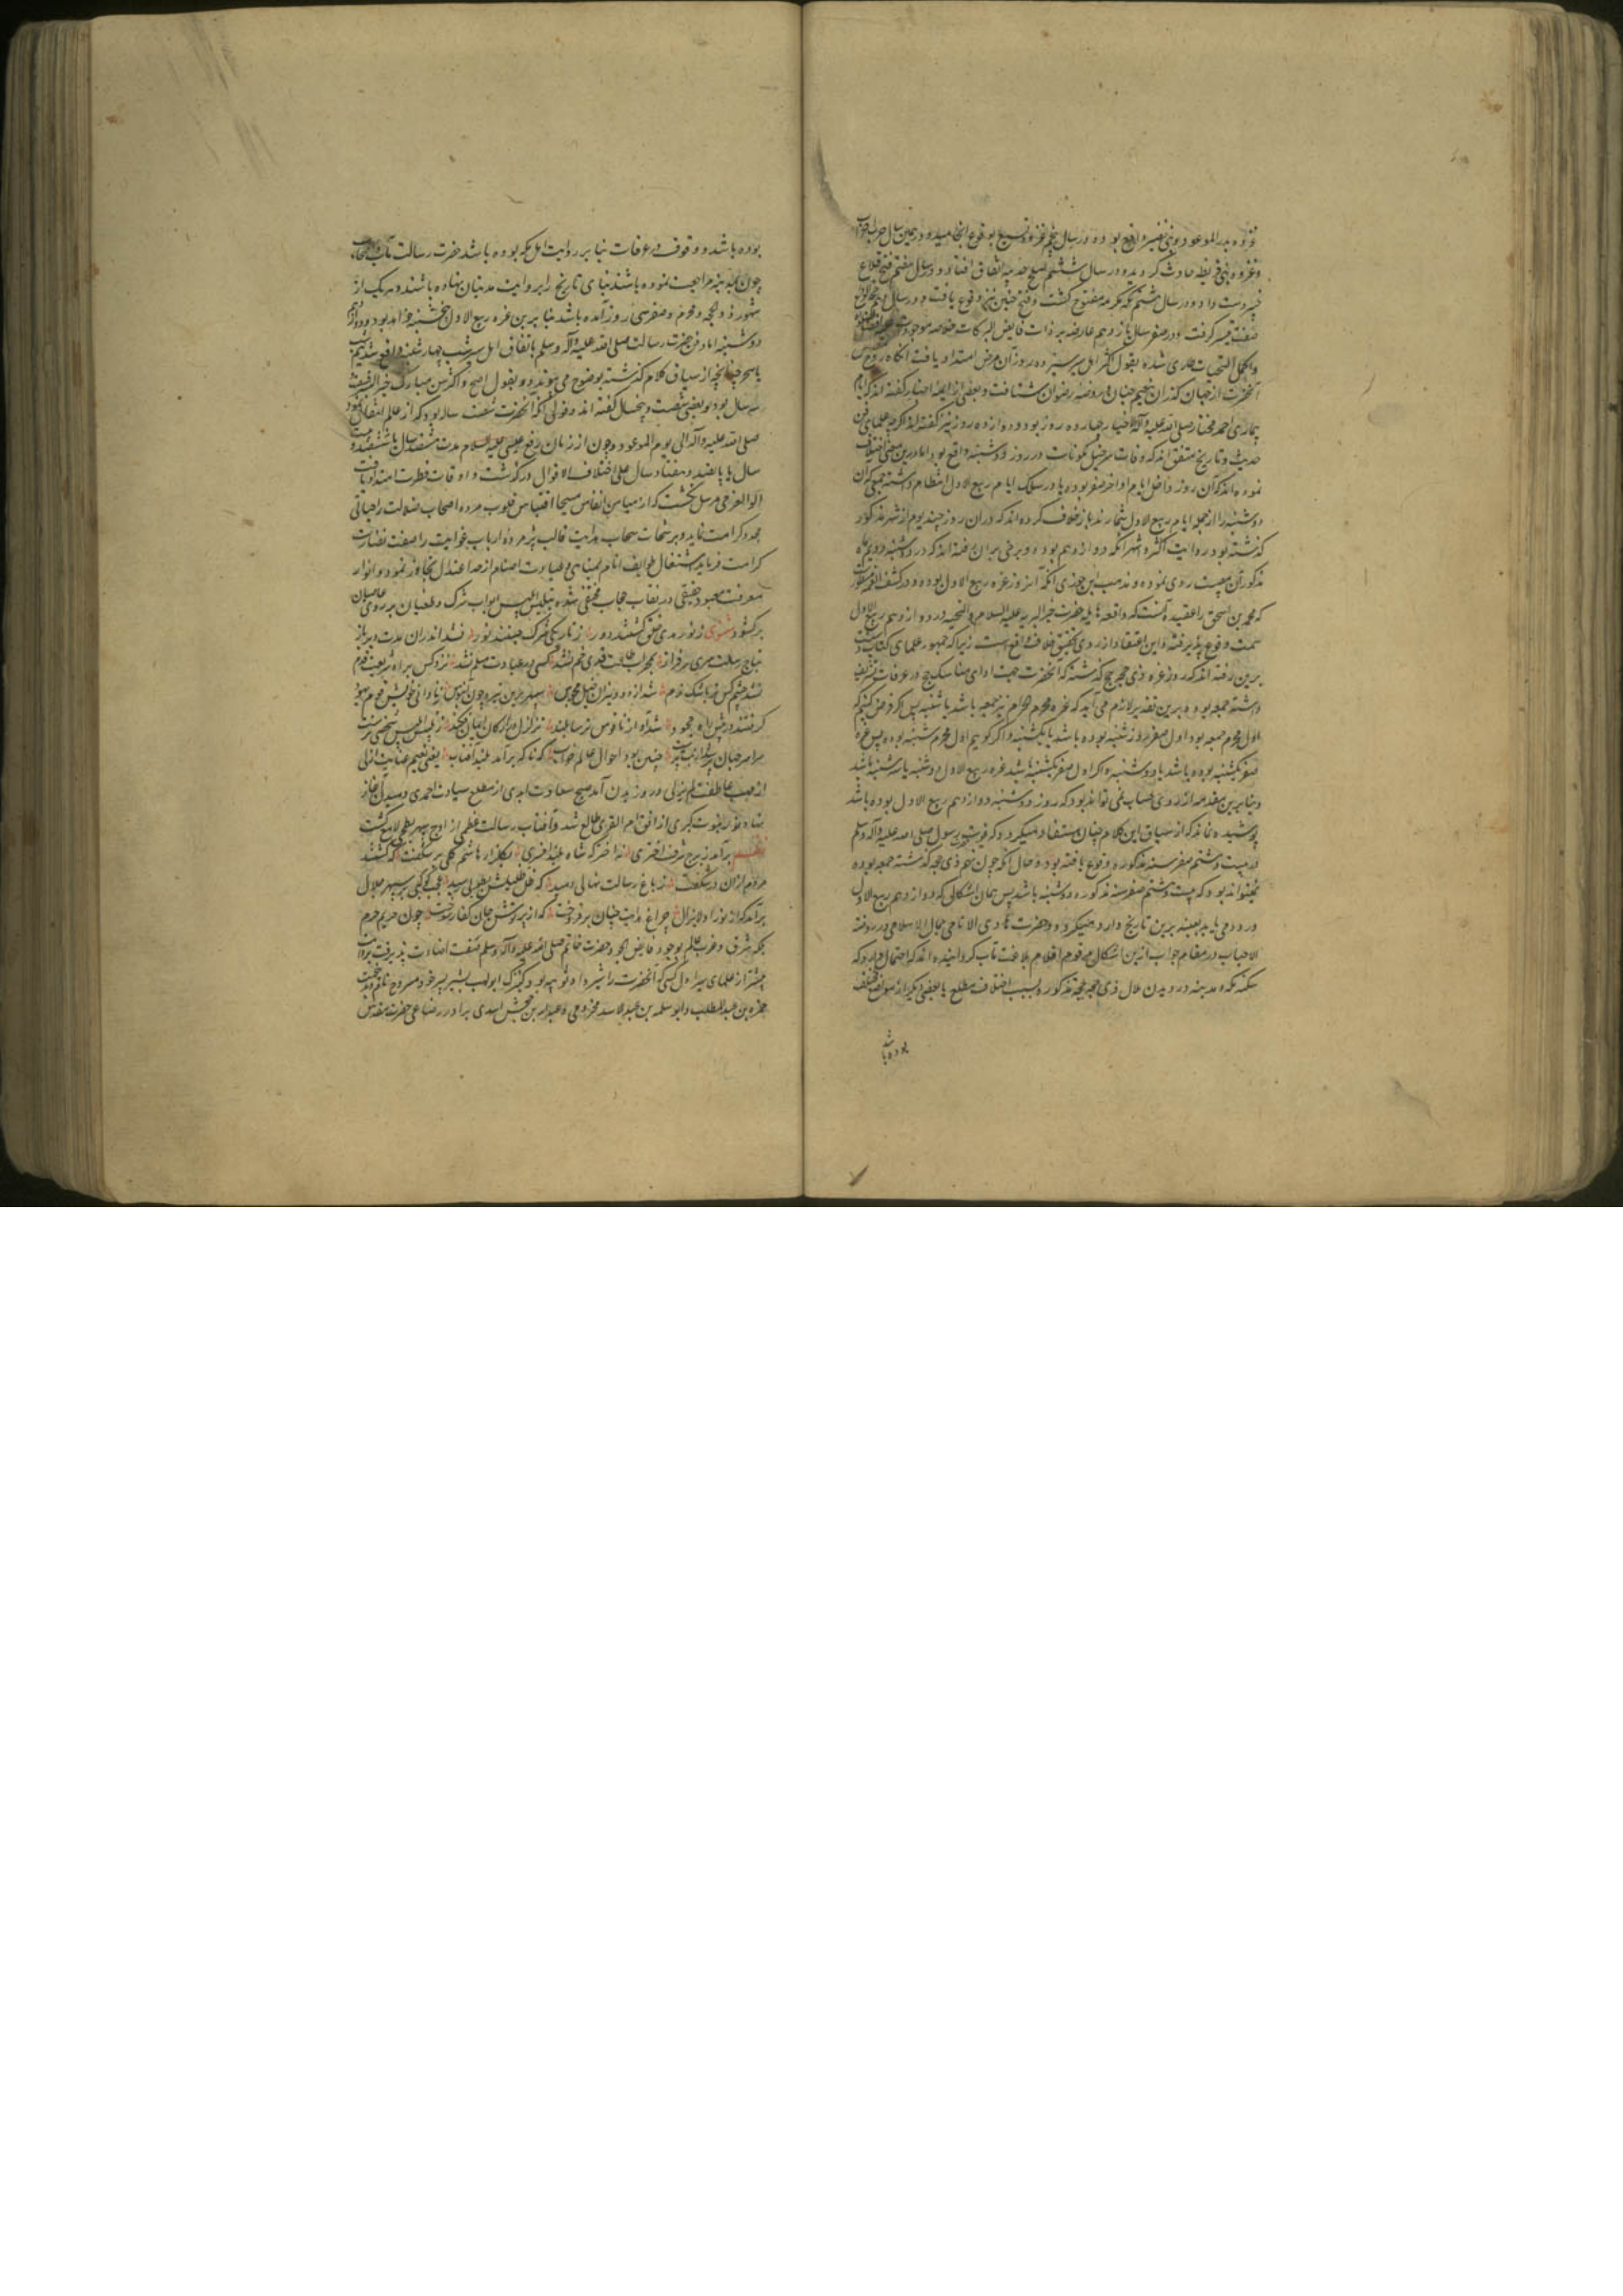 غزوه بدر الموعود و بنی نضیر واقع بود و در سال پنجم غزوه بوقوع انجامید و در همین سال حرب احزاب
و غزوه بنی قریظه حادث گردید و در سال ششم صلح حدیبیه اتفاق افتاد و در سال هفتم فتح قلاع
خیبر دست داد و در سال هشتم مکه مکرمه مفتوح گشت و فتح حنین نیز وقوع یافت و در سال دهم حجة الوداع
صفت تیسر گرفت و در صفر سال یازدهم عارضه بر ذات فایض البرکات خلاصه موجودات علیه افضل
و اکمل التحیات طاری شده بقول اکثر اهل سیر سیزده روز آن مرض امتداد یافت آنگاه روح
آنحضرت از جهان گذران بنعیم جنان و روضه رضوان شتافت و بعضی از ایمه اخبار گفته اند که ایام
بیماری احمد مختار صلی الله علیه و آله الاخیار چهارده روز بود و دوازده روز نیز گفته اند اگرچه علمای فن
حدیث و تاریخ متفق اند که وفات کونات در روز دوشنبه واقع بود اما درین معنی اختلاف
نموده اند که آن روز داخل ایام اواخر صفر بوده یا در سلک ایام ربیع الاول انتظام داشته جمعی که آن
دوشنبه را از جمله ایام ربیع الاول شمارند باز خلاف کرده اند که در آن روز چند یوم از شهر مذکور
گذشته بود روایت اکثر و اشهر آنکه دوازدهم بوده و برخی بر آن رفته اند که در دوشنبه دویم ماه
مذکور آن مصیبت روی نموده و مذهب ابن جوزی آنکه آنروز غره ربیع الاول بوده و در کشف الغمه مسطور
که محمد بن اسحق را عقیده آنست که واقعه هایله حضرت خیر البریه علیه السلام و التحیه در دوازدهم ربیع الاول
سمت وقوع پذیرفته و این اعتقاد از روی تحقیق خلاف واقع است زیرا که جمهور علمای کتاب و سنت
برین رفته اند که روز غره ذی حجه حج گذشته که آنحضرت جهت ادای مناسک حج در عرفات تشریف
داشته جمعه بوده و برین تقدیر لازم می آید که غره محرم الحرام نیز جمعه باشد یا شنبه پس اگر فرض کنیم که
اول محرم جمعه بود اول صفر روز شنبه بوده باشد یا یکشنبه و اگر گوییم اول محرم شنبه بوده پس غره
صفر یکشنبه بوده باشد یا دوشنبه و اگر اول صفر یکشنبه باشد غره ربیع الاول دوشنبه یا سه شنبه باشد
و بنابرین مقدمه از روی حساب نمی تواند بود که روز دوشنبه دوازدهم ربیع الاول بوده باشد
پوشیده نماند که از سیاق این کلام چنان مستفاد میگردد که فوت رسول صلی الله علیه و آله وسلم
در بیست و هشتم صفر سنه مذکوره وقوع یافته بود و حال آنکه چون نهم ذی حجه گذشته جمعه بوده
نمیتواند بود که بیست و هشتم صفر سنه مذکوره دوشنبه باشد پس همان اشکالی که دوازدهم ربیع الاول
ورود می یابد بعینه برین تاریخ وارد میگردد و حضرت هادی الانامی جمال الاسلامی در روضة
الاحباب در مقام جواب ازین اشکال مرقوم اقلام بلاغت مآب گردانیده اند که احتمال دارد که
سکنه مکه و مدینه در دیدن هلال ذی الحجه حجه مذکوره بسبب اختلاف مطلع یا بعضی دیگر از موانع مختلف
بوده باشد
بوده باشد و وقوف عرفات بنا بر روایت اهل مکه بوده باشد حضرت رسالت مآب و اصحاب
چون بمدینه مراجعت نموده باشند بنای تاریخ را بر روایت مدنیان نهاده باشند و هر یک از
شهور ذوالحجه و محرم و صفر سی روز آمده باشد بنا برین غره ربیع الاول پنجشنبه خواهد بود و دوازدهم
دوشنبه اما دفن حضرت رسالت صلی الله علیه و آله وسلم باتفاق اهل سیر شب چهارشنبه واقع شد نیم شب
یا سحر چنانچه از سیاق کلام گذشته بوضوح می پیوندد و بقول اصح و اکثر سن مبارک خیر البریه شصت
و سه سال بود و بعضی شصت و پنجسال گفته اند و قولی آنکه آنحضرت شصت ساله بود که از عالم انتقال نمود
صلی الله علیه و آله الی یوم الموعود و چون از زمان رفع عیسی علیه السلام مدت ششصد سال یا ششصد و بیست
سال یا پانصد و هفتاد سال علی اختلاف الاقوال درگذشت و اوقات فطرت امتداد یافت
اولو العزمی مرسل نگشت که از میامن انفاس مسیحا اقتباس قلوب مرده اصحاب ضلالت را حیاتی
مجدد کرامت نماید و برشحات سحاب هدایت قالب پژمرده ارباب غوایت را صفت نضارت
کرامت فرماید اشتغال طوایف انام بمناهی و عبادت اصنام از حد اعتدال تجاوز نمود و انوار
معرفت معبود حقیقی در نقاب حجاب مختفی شده تلبیس ابلیس ابواب شرک و طغیان بر روی عاصیان
برگشود مثنوی ز نور هدی خلق گشتند دور ز تاریکی شرک جستند نور نشد اندران مدت دیر باز
بتاج رسالت سری سرفراز بمحراب طاعت قدی خم نشد کسی را عبادت مسلم نشد نزد کس براه شریعت قدم
نشد چشم کس ز اشک ندم شد از دود نیران خیل مجوس سپهر برین تیره چون آبنوس ز نادانی خویش قوم یهود
گرفتند در پیش راه جحود شد آواز ناقوس ترسا بلند تزلزل در ارکان ایمان فکند ز تلبیس ابلیس شخصی نرست
سراسر جهان پر شد از بت پرست چنین بود احوال عالم خراب که ناگه برآمد بلند آفتاب یعنی نسیم عنایت ازلی
از مهب عاطفت لم یزلی در وزیدن آمد صبح سعادت ابدی از مطلع سیادت احمدی دمیدن آغاز
نهاد نور نبوت کبری از افق ام القری طالع شد و آفتاب رسالت عظمی از اوج سپهر بطحی لامع گشت
نظم برآمد ز برج شرف اختری نه اختر که شاه بلند افسری بگلزار هاشم گلی بر شگفت که گشتند
مردم ازان در شگفت ز باغ رسالت نهالی دمید که ظل ظلیلش بطوبی رسید عجب کوکبی بر سپهر جلال
برآمد که از نور او لایزال چراغ هدایت چنان برفروخت که از پرتوش جان کفار سوخت چون حریم حرم
بلکه شرق و غرب عالم بوجود فایض الجود حضرت خاتم صلی الله علیه و آله وسلم صفت اضاءت پذیرفت بروایت
بیشتر از علمای سیر اول کسی که آنحضرت را شیر داد ثویبه بود کنیزک ابولهب بشیر پسر خود مسروح نام و ثویبه
حمزه بن عبد المطلب و ابو سلمه بن عبد الاسد مخزومی و عبدالله بن جحش اسدی برادر رضاعی حضرت مقدس